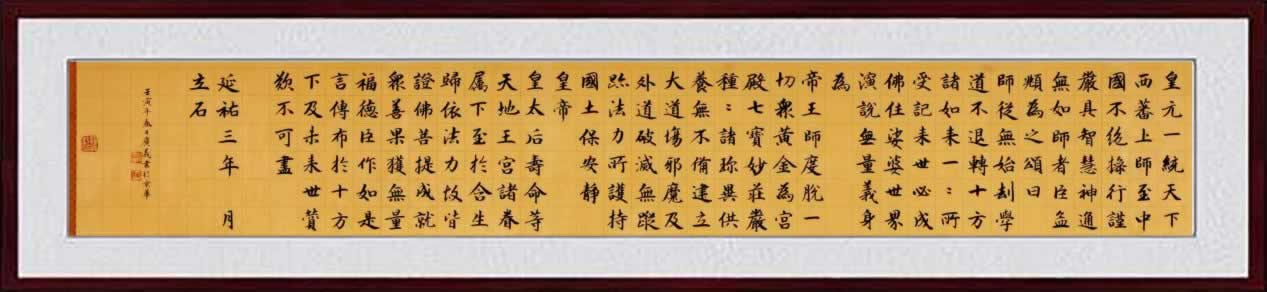 皇元一統天下
而蕃上師至中
國不絕操行謹
嚴具智慧神通
無如師者臣孟
頫為之頌曰
師従無始劫學
道不退轉十方
諸如来一:所
受記来世必成
佛住娑婆世界
演說無量義身
為
帝王師度脫一
切衆黃金為宮
殿七寶妙莊嚴
種:諸珎異供
養無不備建立
大道場邪魔及
外道破滅無蹤
跡法力所護持
國土保安靜
皇帝
皇太后壽命等
天地王宮諸眷
属下至於含生
歸依法力故皆
證佛菩提成就
衆善果獲無量
福德臣作如是
言傳布於十方
下及未来世贊
歎不可盡
延祐三年 月
立石
壬寅年春日廣義書於京華